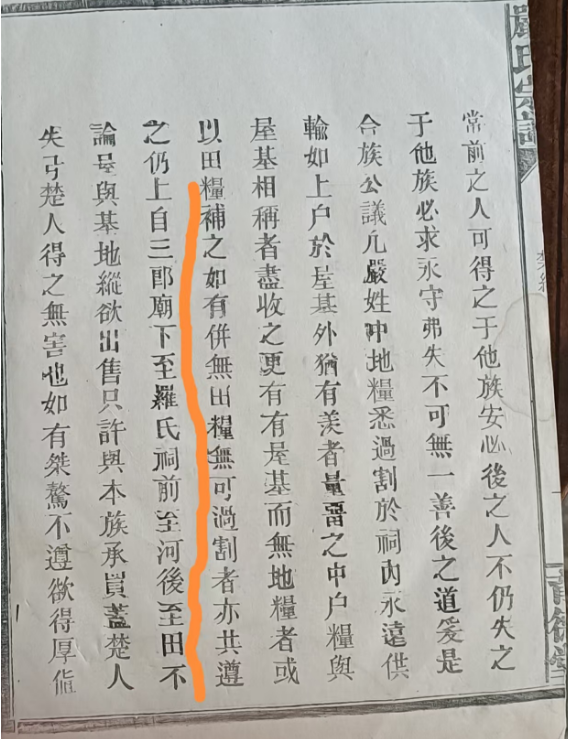 嚴氏宗譜
當前之人可得之于他族安必後之人不仍失之
于他族必求永守弗失不可無一善後之道爰是
合族公議凡嚴姓中地糧悉過割於祠內永遠供
輸如上户於屋基外猶有羨者量畱之中户糧與
屋基相稱者盡收之更有有屋基而無地糧者或
以田糧補之如有併無田糧無可過割者亦共遵
之仍上自三郎廟下至羅氏祠前至河後至田不
論屋與基地縱欲出售只許與本族承買蓋楚人
失弓楚人得之無害也如有桀驁不遵欲得厚值